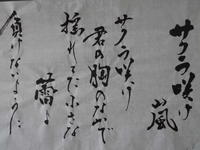 サクラ咲け
嵐
サクラ咲け
君の胸のなかで
揺れてた小さな
蕾よ
負けないように